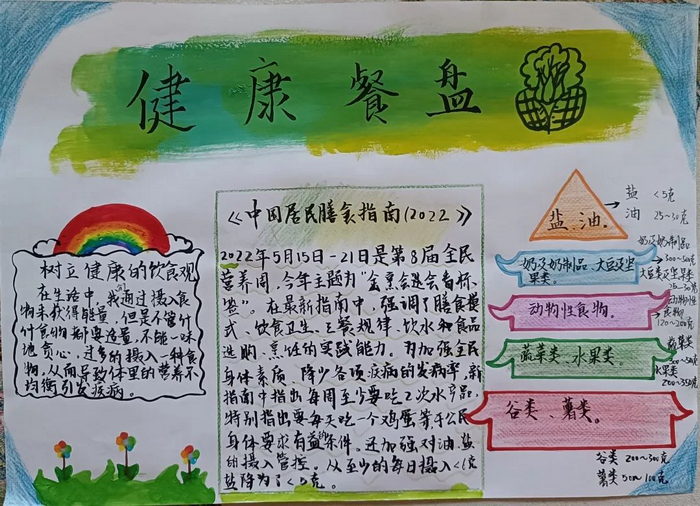 健康餐盘
树立健康的饮食观
在生活中,我们通过摄入食
物来获得能量,但是不管什
什食物都要适量,不能一味
地贪心,过多的摄入一种食
物,从而导致体里的营养不
均衡引发疾病。
《中国居民膳食指南(2022》
2022年5月15日-21日是第8届全民
营养周,今年主题为“会烹会选会看标
签”。在最新指南中,强调了膳食模
式、饮食卫生、三餐规律、饮水和食品
选购、烹饪的实践能力。为加强全民
身体素质、降少各项疾病的发病率,新
指南中指出每周至少要吃2次水产品,
特别指出要每天吃一个鸡蛋等于公民
身体要求有益条件。还加强对油、盐
的摄入管控。从至少的每日摄入<6克
盐降为了<5克。
盐、油.
盐 <5克
油 25~30克
奶及奶制品、大豆及坚
果类。
奶及奶制品
300~500克
大豆及坚果
25~35克
动物性食物.
动物
食物
120~200克
蔬菜类、水果类。
蔬菜类
300~500克
水果类
200~350克
谷类、薯类。
谷类 200~300克
薯类 50~100克